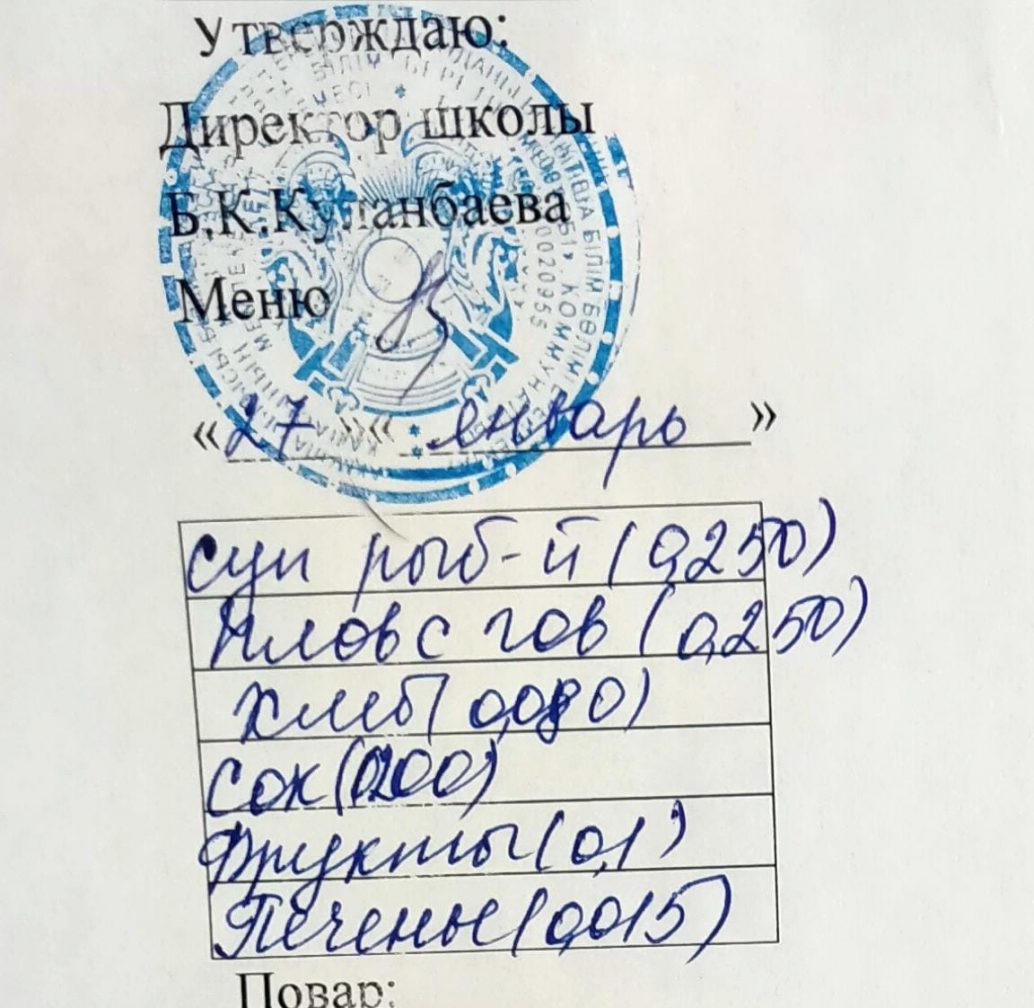 Утверждаю:
Директор школы
Б.К.Куланбаева
Меню
«27 »« январь »
Суп рыб-й (0,250)
Плов с гов (0,250)
Хлеб (0,080)
Сок (0,200)
Фрукты (0,1)
Печенье (0,015)
Повар: